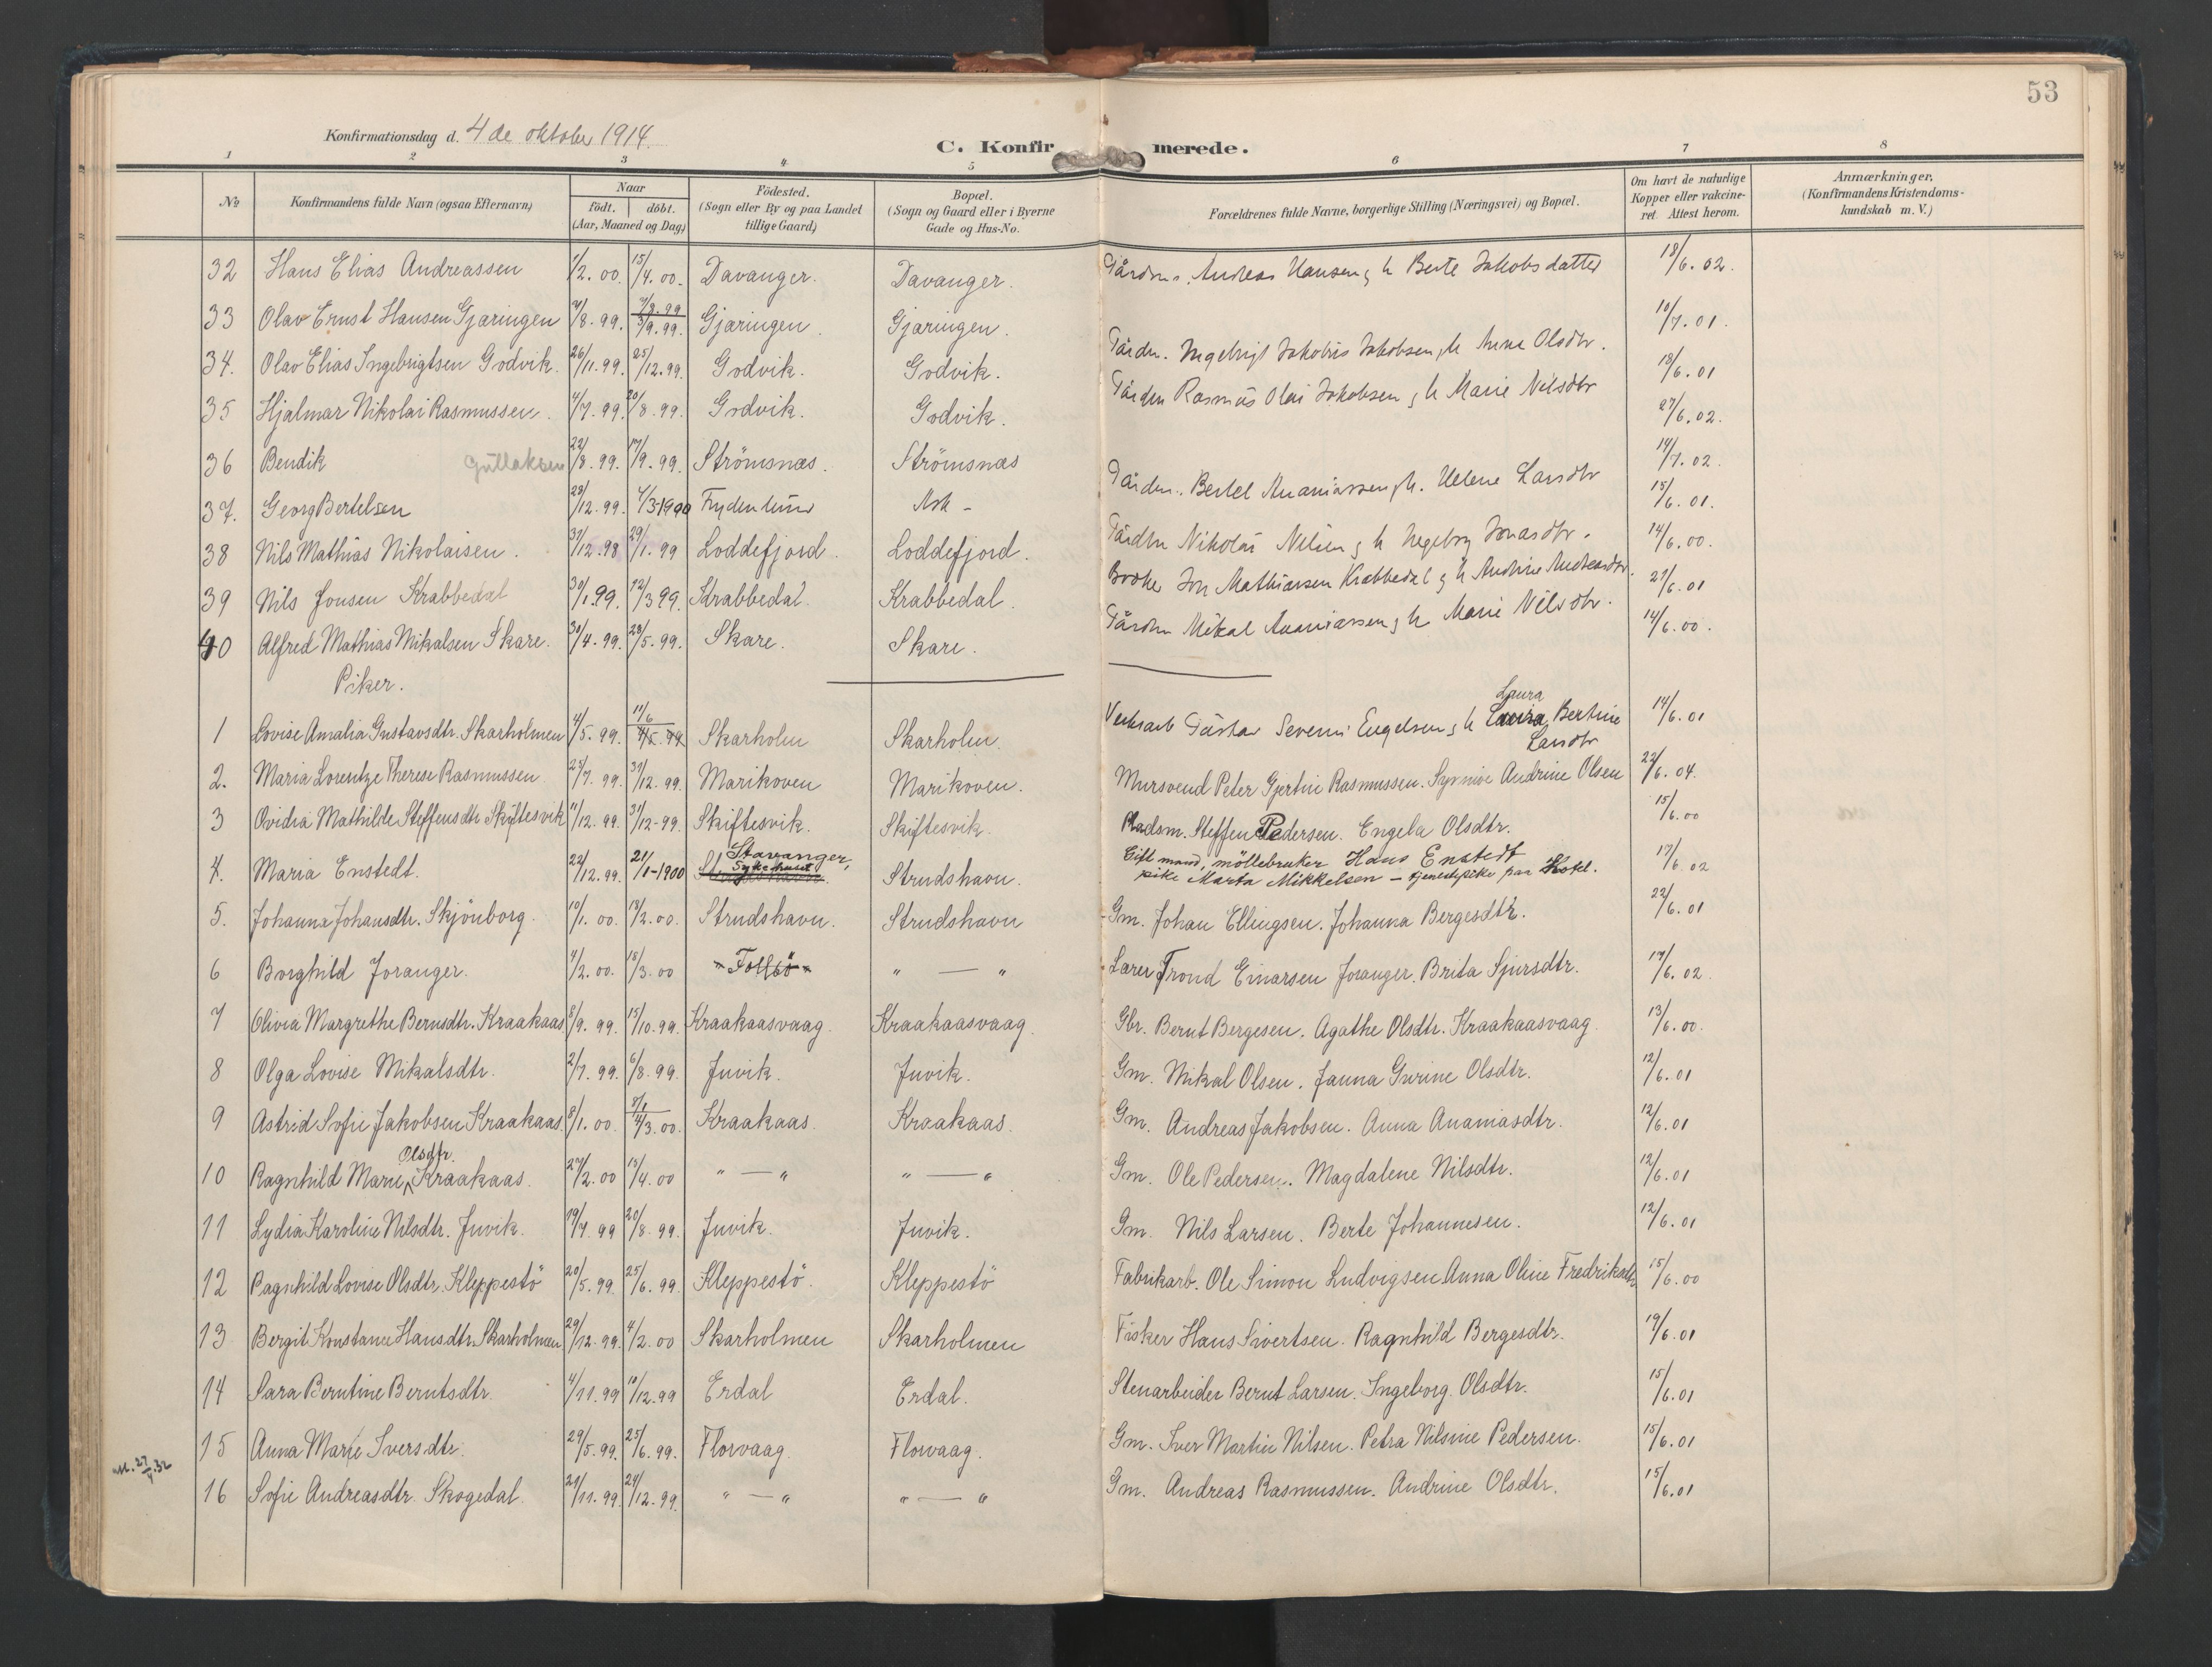 53
Konfirmationsdag d. 4 de oktober 1914.
C. Konfirmerede.
1 2 3 4 5 6 7 8
No
Konfirmandens fulde Navn (ogsaa Efternavn)
Naar
födt. döbt.
(Aar, Maaned og Dag)
Födested.
(Sogn eller By og paa Landet
tillige Gaard)
Bopæl.
(Sogn og Gaard eller i Byerne
Gade og Hus-No.
Forældrenes fulde Navne, borgerlige Stilling (Næringsvei) og Bopæl.
Om havt de naturlige
Kopper eller vakcine-
ret. Attest herom.
Anmærkninger.
(Konfirmandens Kristendoms-
kundskab m. V.)
32 Hans Elias Andreassen 1/2.00. 15/4.00. Davanger. Davanger. Andreas Hansen, h Berte Jakobsdatter 18/6.02.
33 Olav Ernst Hansen Gjæringen 7/8.99. 3/9.99. Gjæringen. Gjæringen. 10/7.01.
34. Olav Elias Ingebrigtsen Godvik. 26/11.99. 25/12.99. Godvik. Godvik. Ingebrigt Jakobsen, h Anna Olsdtr. 18/6.01
35 Hjalmar Nikolai Rasmussen. 4/7.99. 20/8.99. Godvik. Godvik. Rasmus Olai Jakobsen, h Marie Nilsdtr 27/6.02.
36 Bendik Gullaksen 22/8.99. 17/9.99. Strömsnæs. Strömsnæs 14/7.02.
37. Georg Bertelsen 28/12.99. 4/3-1900 Frydenlund Ask - Bertel Ananiassen, h. Helene Larsdtr 15/6.01.
38 Nils Mathias Nikolaisen. 31/12.98 29/1.99 Loddefjord. Loddefjord. Nikolai Nilsen, h Ingeborg Jonasdtr. 14/6.00.
39 Nils Jonsen Krabbedal 30/1.99. 12/3 99. Krabbedal. Krabbedal. Jon Mathiassen Krabbedal, h Andrine Andreasdtr. 21/6.01
40 Alfred Mathias Mikalsen Skare. 30/4.99. 28/5.99. Skare. Skare. Mikal Ananiassen, h Marie Nilsdtr. 14/6.00.
Piker.
1 Lovise Amalia Gustavsdtr. Skarholmen 4/5.99. 11/6 Skarholm Skarholm. Severin Engelsen, h Laura Bertine Larsdtr 14/6.01
2. Maria Lorentze Therese Rasmussen 23/7.99. 31/12.99. Marikoven Marikoven. Mursvend Peter Gjertin Rasmussen. Synnive Andrine Olsen 22/6.04.
3 Ovidia Mathilde Steffensdtr Skiftesvik 11/12.99. 31/12-99. Skiftesvik. Skiftesvik. Pladsm. Steffen Pedersen. Engela Olsdtr. 15/6.00
4. Maria Enstedt. 22/12.99. 21/1-1900 Stavanger, Sykehuset Strudshavn. Gift mand, möllebruker Hans Enstedt
pike Marta Mikkelsen - tjenestepike paa Hotel. 17/6.02
5. Johanna Johansdtr. Skjönborg. 10/1.00. 18/2.00. Strudshavn. Strudshavn Gm. Johan Ellingsen. Johanna Bergesdtr. 22/6.01
6 Borghild Joranger. 4/2.00. 18/3.00 " — " Lærer Trond Einarsen Joranger. Brita Sjursdtr. 17/6.02.
7 Olivia Margrethe Berntsdtr. Kraakaas 8/9.99. 15/10.99. Kraakaasvaag. Kraakaasvaag. Gbr. Bernt Bergesen. Agathe Olsdtr. Kraakaasvaag. 13/6.00.
8 Olga Lovise Mikalsdtr. 2/7.99. 6/8.99. Juvik. Juvik. Gm. Mikal Olsen. Janna Gurine Olsdtr. 12/6.01
9 Astrid Sofie Jakobsen Kraakaas. 8/1.00. 4/3.00. Kraakaas. Kraakaas. Gm. Andreas Jakobsen. Anna Ananiasdtr. 12/6.01
10 Ragnhild Marie Olsdtr. Kraakaas. 27/2.00 13/4.00 " — " " — " Gm. Ole Pedersen. Magdalene Nilsdtr. 12/6.01
11 Lydia Karoline Nilsdtr. Juvik. 19/7.99 20/8.99. Juvik. Juvik. Gm. Nils Larsen. Berte Johannesen. 12/6.01
12 Ragnhild Lovise Olsdtr. Kleppestö 20/5.99. 25/6.99. Kleppestö. Kleppestö Fabrikarb. Ole Simon Ludvigsen. Anna Oline Fredriksdtr. 15/6.00
13 Bergit Konstance Hansdtr. Skarholmen 29/12.99. 4/2.00 Skarholmen Skarholmen Fisker Hans Sivertsen. Ragnhild Bergesdtr. 19/6.01
14 Sara Berntine Berntsdtr. 4/11.99 10/12.99 Erdal Erdal. Stenarbeider Bernt Larsen. Ingeborg Olsdtr. 15/6.01
15 Anna Marie Iversdtr. 29/5.99. 25/6.99. Florvaag. Florvaag. Gm. Iver Martin Nilsen. Petra Nilsine Pedersen. 15/6.01
16 Sofie Andreasdtr. Skogedal. 21/11.99. 24/12.99. " — " " — " Gm. Andreas Rasmussen. Andrine Olsdtr. 15/6.01